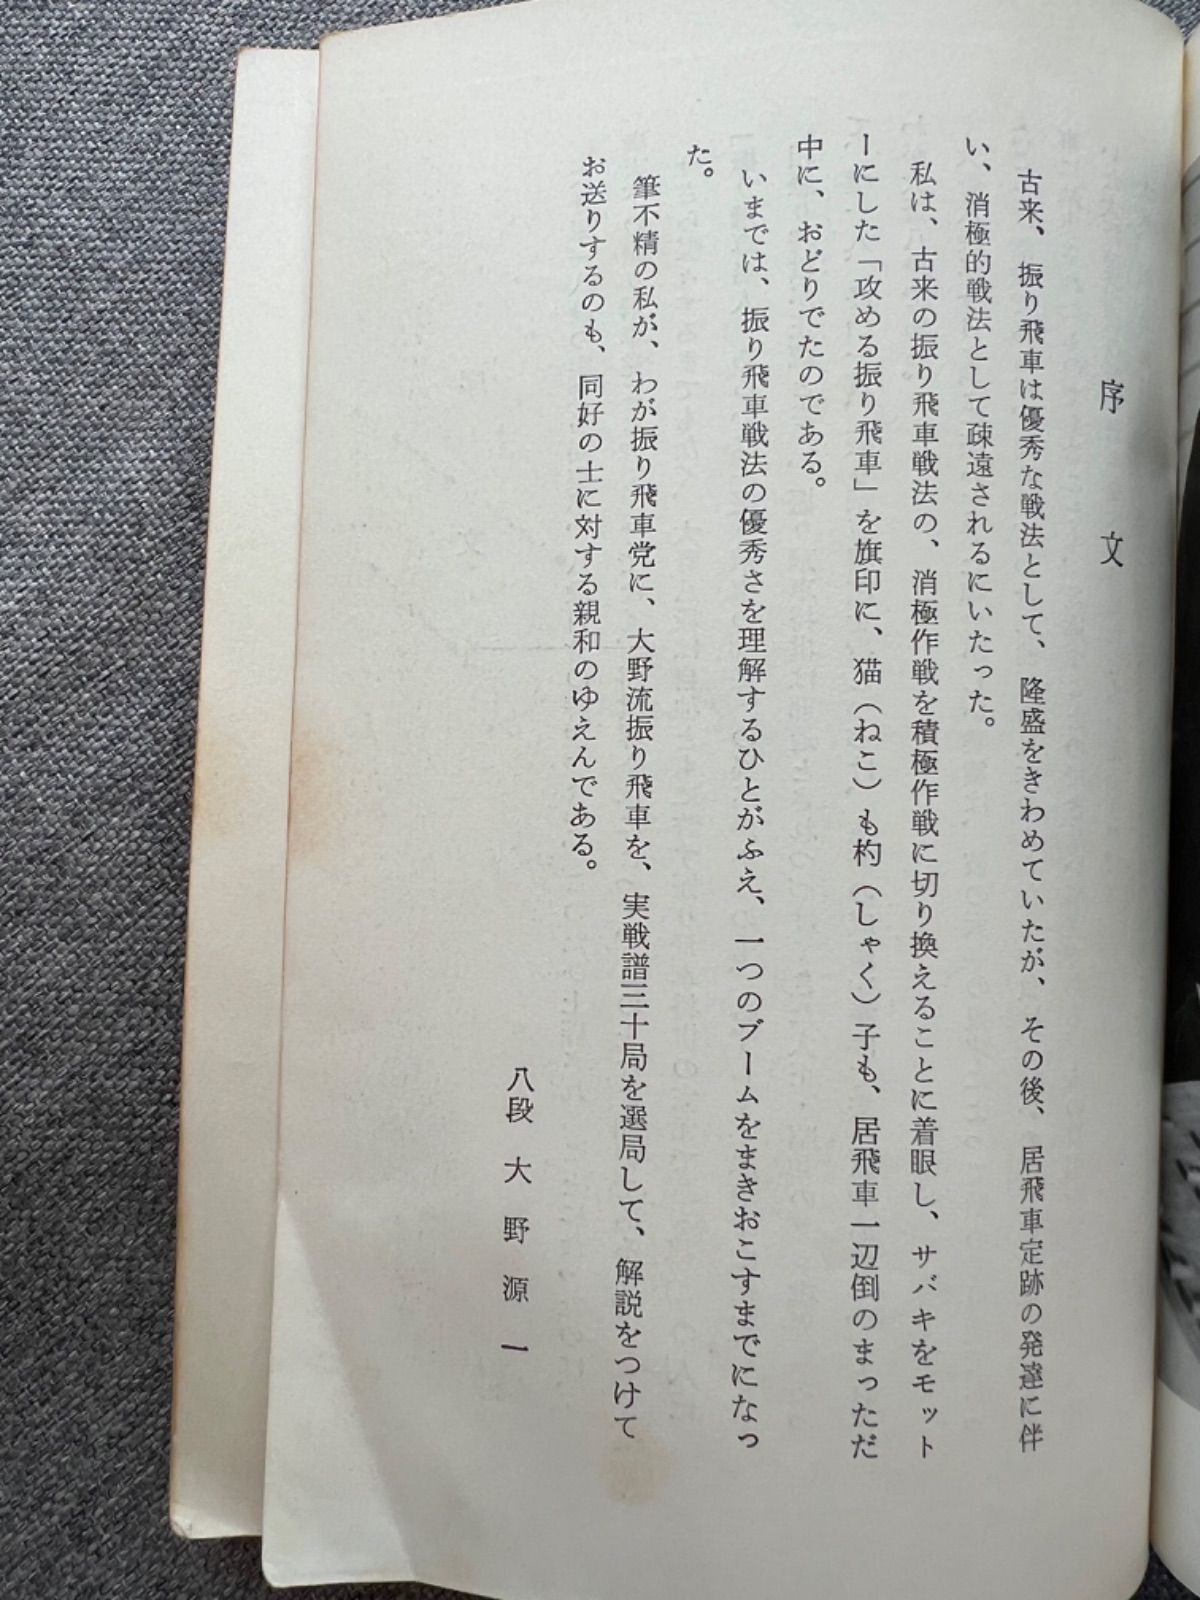 序文
古来、振り飛車は優秀な戦法として、隆盛をきわめていたが、その後、居飛車定跡の発達に伴
い、消極的戦法として疎遠されるにいたった。
私は、古来の振り飛車戦法の、消極作戦を積極作戦に切り換えることに着眼し、サバキをモット
ーにした「攻める振り飛車」を旗印に、猫（ねこ）も杓（しゃく）子も、居飛車一辺倒のまっただ
中に、おどりでたのである。
いまでは、振り飛車戦法の優秀さを理解するひとがふえ、一つのブームをまきおこすまでになっ
た。
筆不精の私が、わが振り飛車党に、大野流振り飛車を、実戦譜三十局を選局して、解説をつけて
お送りするのも、同好の士に対する親和のゆえんである。
八段 大野源一